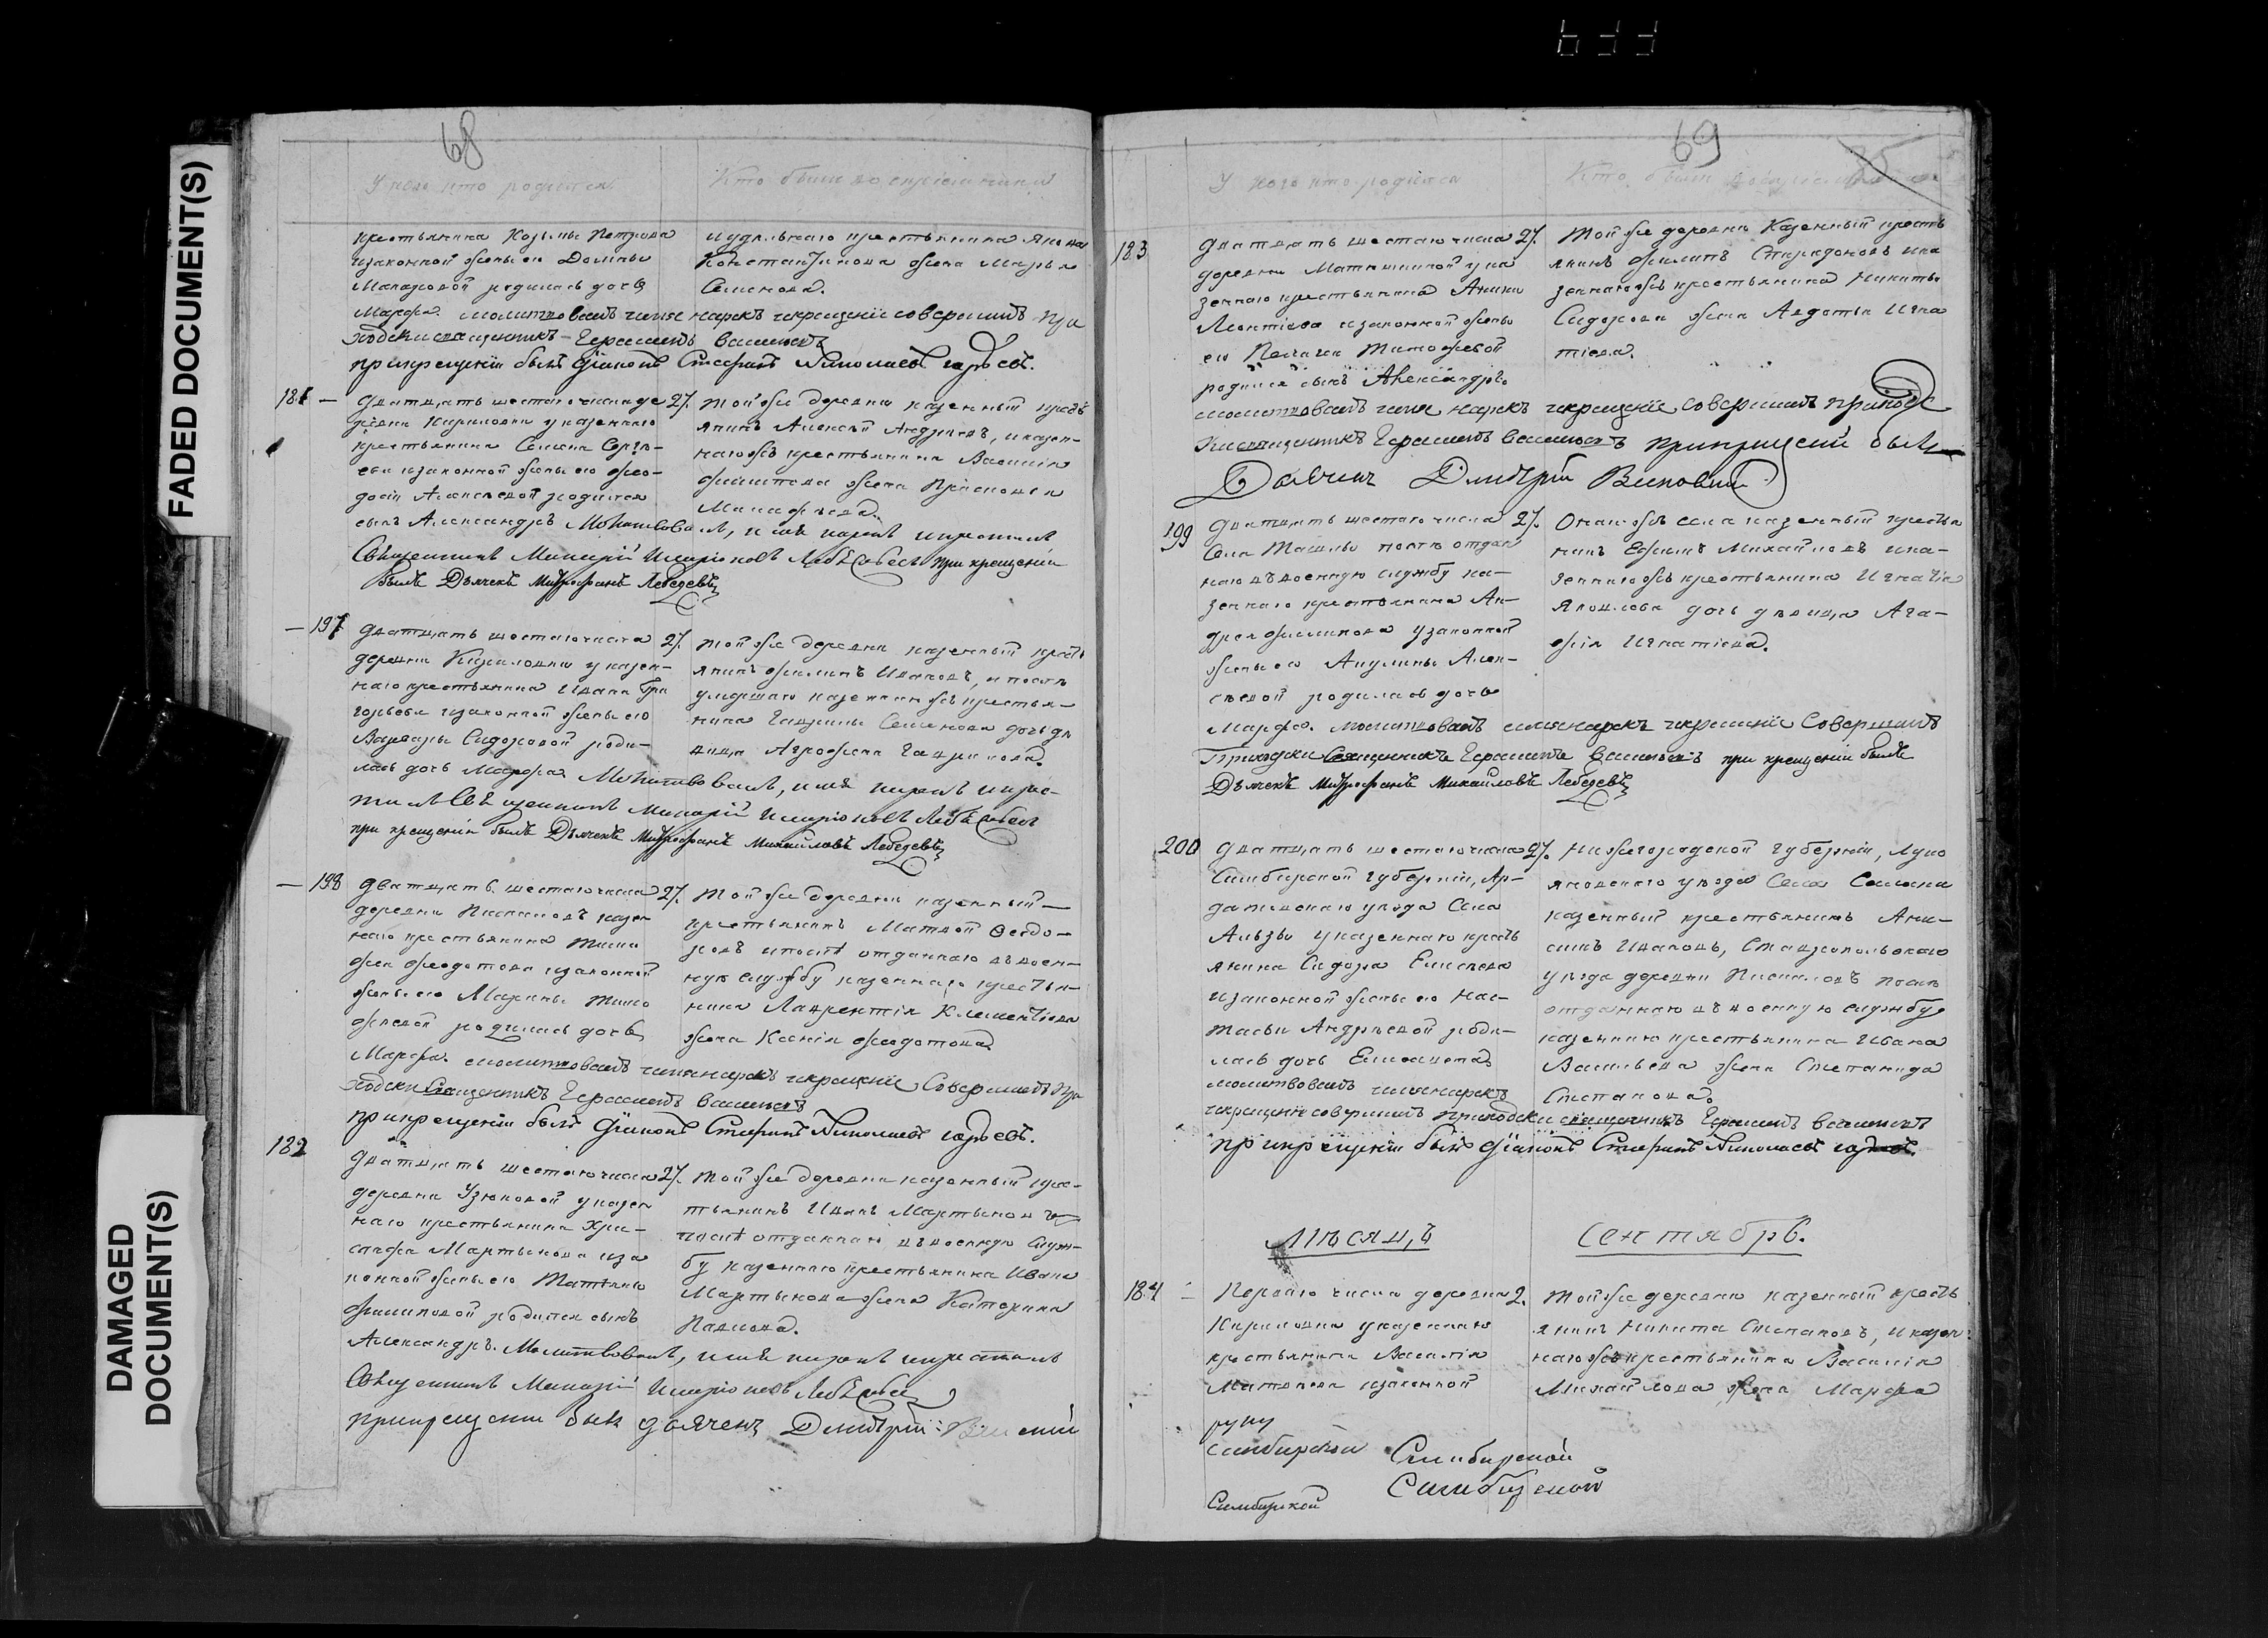 FADED DOCUMENT(S)
DAMAGED
DOCUMENT(S)
68
У кого кто родился
Кто были воспріемники
крестьянина Козьмы Петрова
изаконной жены ея Домны
Макаровой родилась дочь
Марфа. молитвовалъ имя нарекъ икрещеніе совершилъ при
ходски священникъ Герасимъ Васильевъ
прикрещеніи былъ Діаконъ Стефанъ Николаевъ
иудѣльнаго крестьянина Якова
Константинова жена Марья
Семенова.
181 —
Дватцать шестаго числа де 27.
ревни Кириловки у казеннаго
крестьянина Семена Серге-
ева изаконной жены его Фео-
досіи Алексѣевой родился
сынъ Александръ Молитвовалъ, имя нарекъ икрестилъ
Священникъ Макарій Иларіоновъ
при крещеніи
былъ Дьячекъ Митрофанъ Лебедевъ
Той же деревни казенный крест
янинъ Алексѣй Андреевъ, иказен-
наго жъ крестьянина Василія
Филипова жена Прасковья
— 197
Дватцать шестаго числа 27.
деревни Кириловки у казен-
наго крестьянина Ивана Гри
горьева изаконной жены его
Варвары Сидоровой роди-
лась дочь Марфа Молитвовалъ, имя нарекъ икре-
стилъ Священникъ Макарій Иларіоновъ
при крещеніи былъ Дьячекъ Митрофанъ Михайловъ Лебедевъ
Той же деревни казенный крест
янинъ Филипъ Ивановъ, ипослѣ
умершаго казеннаго жъ крестья-
нина Гаврилы Семенова дочь дѣ
вица Агрофена Гаврилова.
— 198
Дватцать шестаго числа 27.
деревни Пискаловъ казен
наго крестьянина Тимо
фея Федотова изаконной
жены его Марины Тимо
фѣевой родилась дочь
Марфа. молитвовалъ имянарекъ икрещеніе Совершилъ при
ходски Священникъ Герасимъ Васильевъ
прикрещеніи былъ Діаконъ Стефанъ Николаевъ
Той же деревни казенный
крестьянинъ Матвей Ѳедо-
ровъ ипослѣ отданнаго въвоен-
ную службу казеннаго крестья-
нина Лаврентія Клементіева
жена Ксенія Федотова
182
Дватцать шестаго числа 27.
деревни Узюковой у казен
наго крестьянина Хри-
санфа Мартынова иза
конной жены его Татьяны
Филиповой родился сынъ
Александръ. Молитвовалъ, имя нарекъ икрестилъ
Священникъ Макарій Иларіоновъ
прикрещеніи былъ дьячекъ Дмитрій
Той же деревни казенный крес-
тьянинъ Иванъ Мартыновъ и
послѣ отданнаго въвоенную служ-
бу казеннаго крестьянина Ивана
Мартынова жена Катерина
Павлова.
69
У кого кто родился
Кто были воспріемники
183
Дватцать шестаго числа 27.
деревни Матюшкиной у ка
зеннаго крестьянина Аники
Леонтіева изаконной жены
ея Пелагеи Тимофѣевой
родился сынъ Александръ
молитвовалъ имя нарекъ икрещеніе совершилъ приход
ски священникъ Герасимъ Васильевъ прикрещеніи былъ
Дьячекъ Дмитрій
Той же деревни Казенный кресть
янинъ Филипъ Спиридоновъ ика
зеннаго жъ крестьянина Никиты
Сидорова жена Авдотья Игна
тіева.
199
Дватцать шестаго числа 27.
Села Ташлы послѣ отдан
наго въвоенную службу ка-
зеннаго крестьянина Ан-
дрея Филипова узаконной
жены его Акулины Алек-
сѣевой родилась дочь
Марфа. молитвовалъ имянарекъ икрещеніе Совершилъ
Приходски Священникъ Герасимъ Васильевъ при крещеніи былъ
Дьячекъ Митрофанъ Михайловъ Лебедевъ
Онаго жъ села казенный крестья
нинъ Ефимъ Михайловъ ика-
зеннаго жъ крестьянина Игнатія
Яковлева дочь дѣвица Ага-
фія Игнатіева.
200
Дватцать шестаго числа 27.
Симбирской губерніи, Ар-
датовскаго уѣзда Села
Алызы у казеннаго кресть
янина Сидора Елисеева
изаконной жены его Нас-
тасьи Андреевой роди-
лась дочь Елисавета
молитвовалъ имянарекъ
икрещеніе совершилъ приходски священникъ Герасимъ Васильевъ
прикрещеніи былъ Діаконъ Стефанъ Николаевъ
Нижегородской губерніи, Луко
яновскаго уѣзда Села
казенный крестьянинъ Ани-
симъ Ивановъ, Ставропольскаго
уѣзда деревни Пискаловъ послѣ
отданнаго въвоенную службу
казеннаго крестьянина Ивана
Васильева жена Степанида
Степанова.
Мѣсяцъ Сентябрь.
184 —
Перваго числа деревни 2.
Кириловки у казеннаго
крестьянина Василія
Матвѣева изаконной
Той же деревни казенный кресть
янинъ Никита Степановъ, иказен
наго жъ крестьянина Василія
Михайлова жена Марфа
руку
симбирской
Симбирской
Симбирской
Симбирской